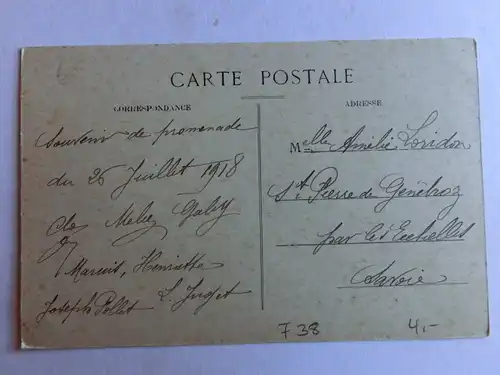 CARTE POSTALE
CORRESPONDANCE
ADRESSE
Souvenir de promenade
du 26 Juillet 1918
Gaby
Henriette
Joseph Pollet
Melle Amélie Loridon
St Pierre de Génébroz
par les Echelles
Savoie
738
4,-